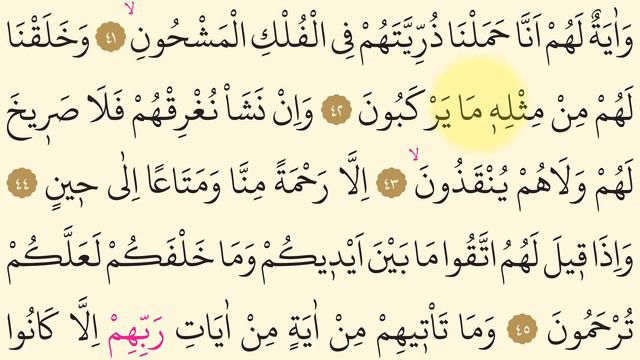 وَاٰيَةٌ لَهُمْ اَنَّا حَمَلْنَا ذُرِّيَّتَهُمْ فِى الْفُلْكِ الْمَشْحُونِۙ ٤١ وَخَلَقْنَا
لَهُمْ مِنْ مِثْلِه۪ مَا يَرْكَبُونَ ٤٢ وَاِنْ نَشَاْ نُغْرِقْهُمْ فَلَا صَر۪يخَ
لَهُمْ وَلَاهُمْ يُنْقَذُونَۙ ٤٣ اِلَّا رَحْمَةً مِنَّا وَمَتَاعًا اِلٰى ح۪ينٍ ٤٤
وَاِذَا ق۪يلَ لَهُمُ اتَّقُوا مَا بَيْنَ اَيْد۪يكُمْ وَمَا خَلْفَكُمْ لَعَلَّكُمْ
تُرْحَمُونَ ٤٥ وَمَا تَأْت۪يهِمْ مِنْ اٰيَةٍ مِنْ اٰيَاتِ رَبِّهِمْ اِلَّا كَانُوا